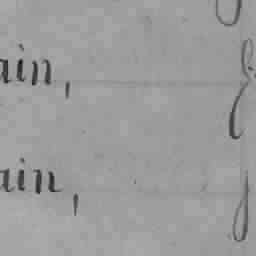 ain,
ain,